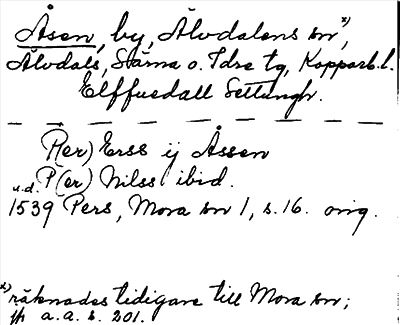 Åsen, by, Älvdalens sn x),
Älvdals, Särna o. Idre tg, Kopparb. l.
Elffuedall Settungh.
P(er) Erss ij Åssen
P(er) Nilss ibid.
u.d. 1539 Pers, Mora sn 1, s. 16. orig.
x) räknades tidigare till Mora sn;
jfr a.a. s. 201.